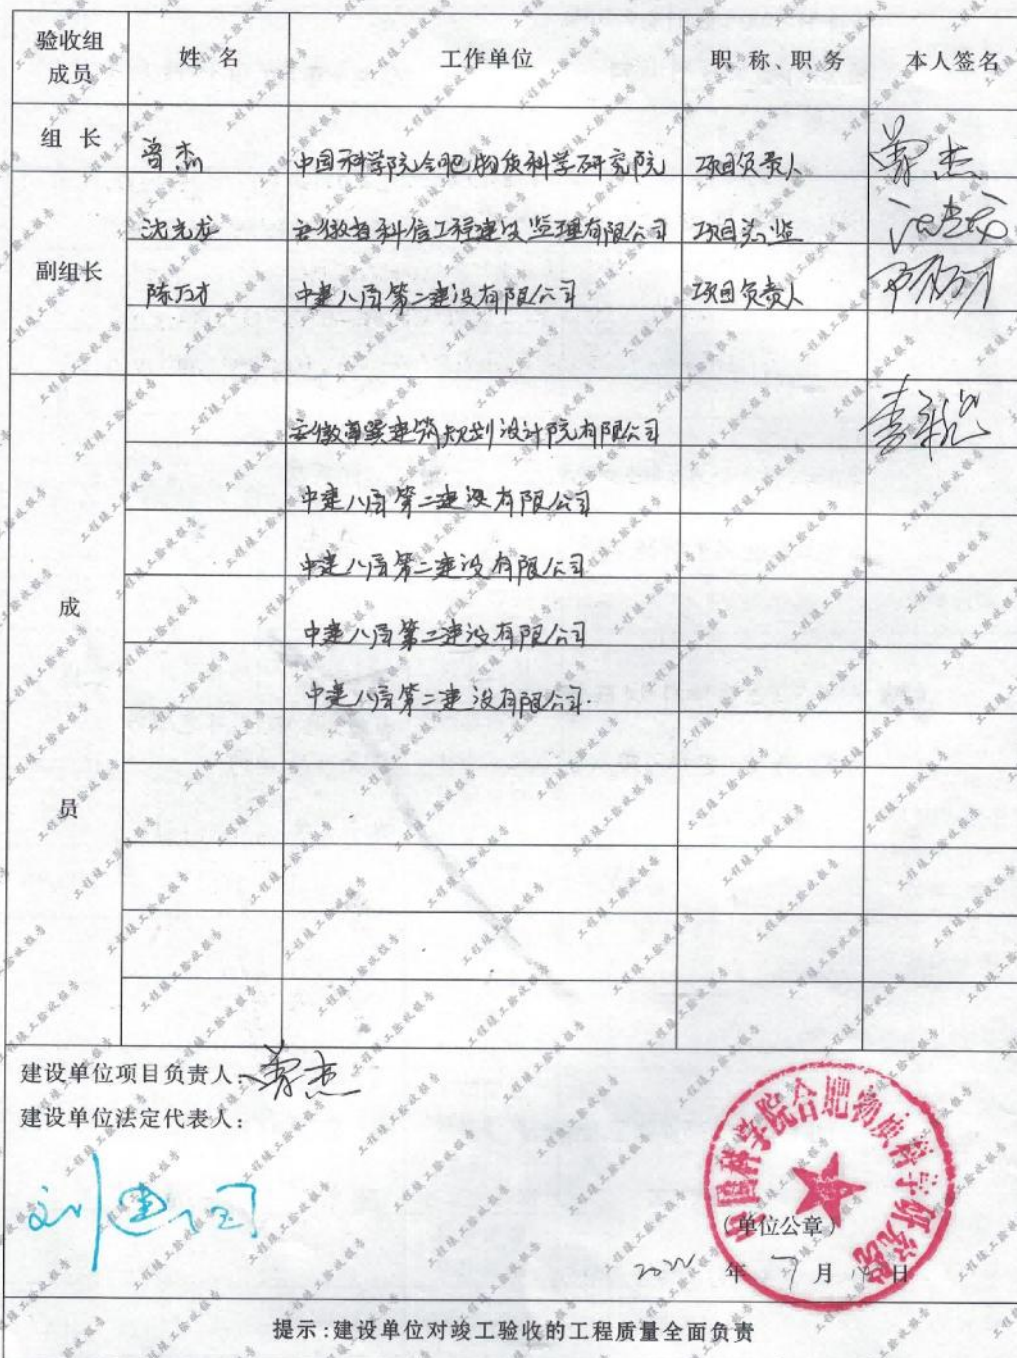 验收组成员 姓 名 工作单位 职 称、职 务 本人签名
组 长 曾杰 中国科学院合肥物质科学研究院 项目负责人 曾杰
副组长
沈光龙 安徽省科信工程建设监理有限公司 项目总监
陈万才 中建八局第二建设有限公司 项目负责人 陈万才
成员
安徽 建筑规划设计院有限公司
中建八局第二建设有限公司
中建八局第二建设有限公司
中建八局第二建设有限公司
中建八局第二建设有限公司.
建设单位项目负责人: 曾杰
建设单位法定代表人:
中国科学院合肥物质科学研究院
(单位公章)
年 7 月 日
提示:建设单位对竣工验收的工程质量全面负责
工程竣工验收报告